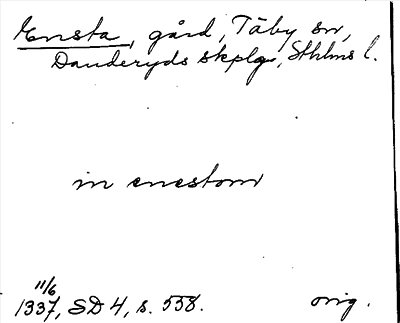 Ensta, gård, Täby sn,
Danderyds skplg, Sthlms l.
in enestom
11/6
1337, SD 4, s. 558. orig.